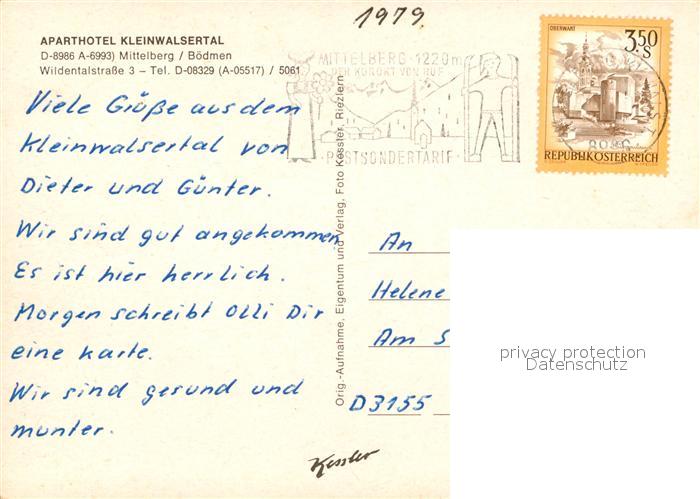 1979
APARTHOTEL KLEINWALSERTAL
D-8986 A-6993) Mittelberg / Bödmen
Wildentalstraße 3 – Tel. D-08329 (A-05517) / 5061
MITTELBERG · 1220m
DER KURORT VON RUF
· POSTSONDERTARIF ·
OBERWART
3.50
S
REPUBLIK ÖSTERREICH
8986
Viele Grüße aus dem
Kleinwalsertal von
Dieter und Günter.
Wir sind gut angekommen
Es ist hier herrlich.
Morgen schreibt Olli Dir
eine Karte.
Wir sind gesund und
munter.
Orig.-Aufnahme, Eigentum und Verlag, Foto Kessler, Riezlern
An
Helene
Am S
D3155
privacy protection
Datenschutz
Kessler